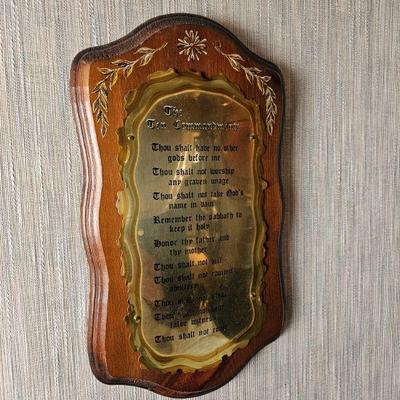 The
Ten Commandments
Thou shalt have no other
gods before me
Thou shalt not worship
any graven image
Thou shalt not take God's
name in vain
Remember the sabbath to
keep it holy
Honor thy father and
thy mother
Thou shalt not kill
Thou shalt not commit
adultery
Thou
Thou
false witness
Thou shalt not covet